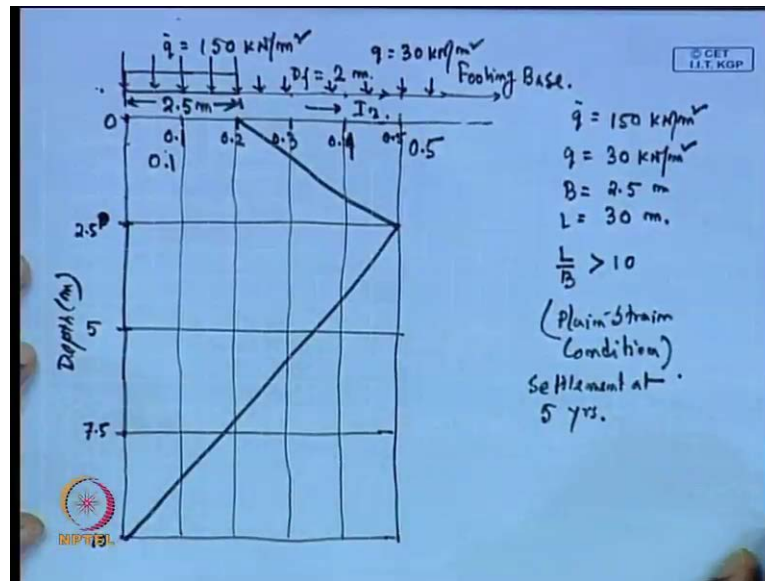 q̄ = 150 KN/m²
q = 30 KN/m²
© CET
I.I.T. KGP
Df = 2 m.
Footing Base.
2.5 m
→ Iz.
0
0.1
0.2
0.3
0.4
0.5
0.1
0.5
2.5
5
7.5
Depth (m)
q̄ = 150 KN/m²
q = 30 KN/m²
B = 2.5 m
L = 30 m.
L/B > 10
(Plain-Strain
Condition)
Settlement at
5 yrs.
NPTEL